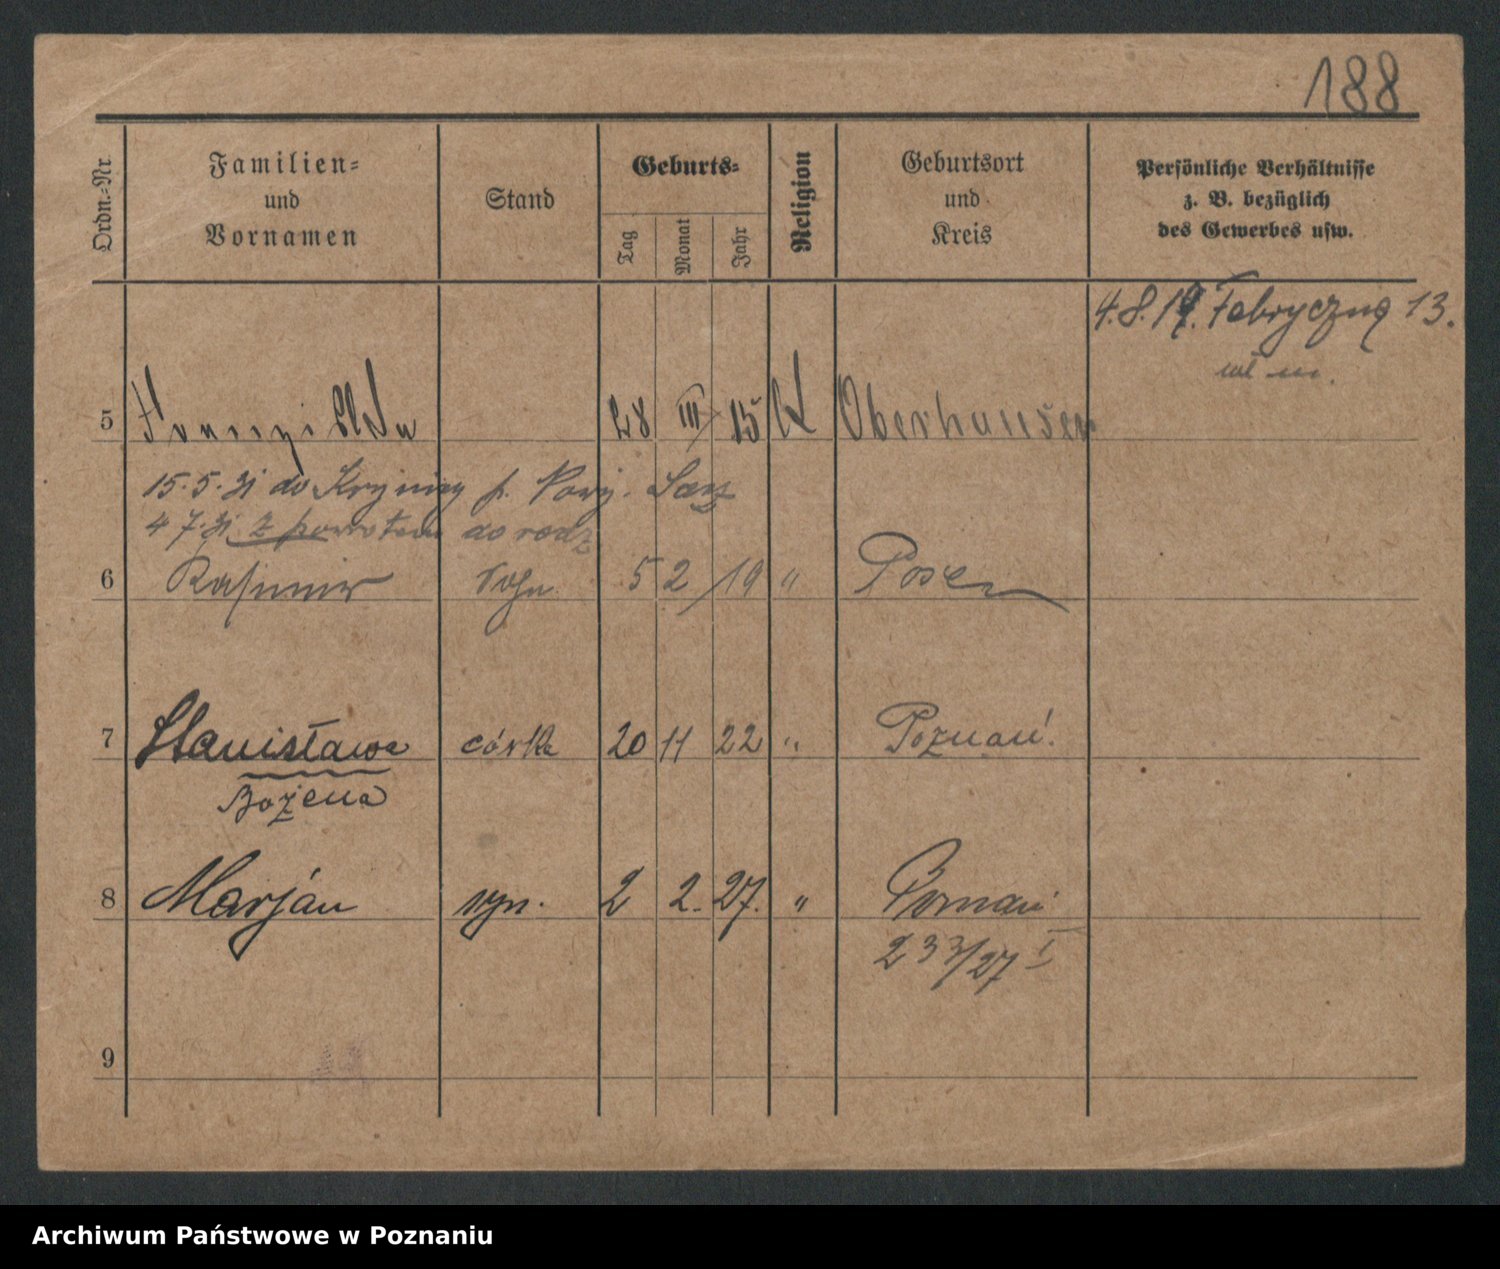 188
Ordn.-Nr
Familien-
und
Vornamen
Stand
Geburts-
Tag
Monat
Jahr
Religion
Geburtsort
und
Kreis
Persönliche Verhältnisse
z. B. bezüglich
des Gewerbes usw.
4.8.19. Fabryczną 13.
5 28 III 15 K Oberhausen
15.5.31 do
4 7.31 z powrotem do rodz
6 Kasimir Sohn 5 2 19 " Posen
7 Stanisława córka 20 11 22 " Poznań
Bożena
8 Marján syn. 2 2. 27. " Poznań
233/27 I
9
Archiwum Państwowe w Poznaniu